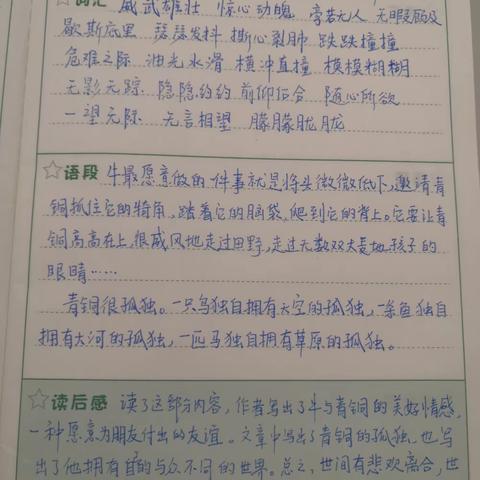 词汇 威武雄壮 惊心动魄 旁若无人 无暇顾及
歇斯底里 瑟瑟发抖 撕心裂肺 跌跌撞撞
危难之际 油光水滑 横冲直撞 模模糊糊
无影无踪 隐隐约约 前仰后合 随心所欲
一望无际 无言相望 朦朦胧胧
☆语段 牛最愿意做的一件事就是将头微微低下,邀请青
铜抓住它的犄角,踏着它的脑袋,爬到它的背上。它要让青
铜高高在上,很威风地走过田野,走过无数双大麦地孩子的
眼睛……
青铜很孤独。一只鸟独自拥有天空的孤独,一条鱼独自
拥有大河的孤独,一匹马独自拥有草原的孤独。
☆读后感 读了这部分内容,作者写出了牛与青铜的美好情感,
一种愿意为朋友付出的友谊。文章中写出了青铜的孤独,也写
出了他拥有自己的与众不同的世界。总之,世间有悲欢离合,世